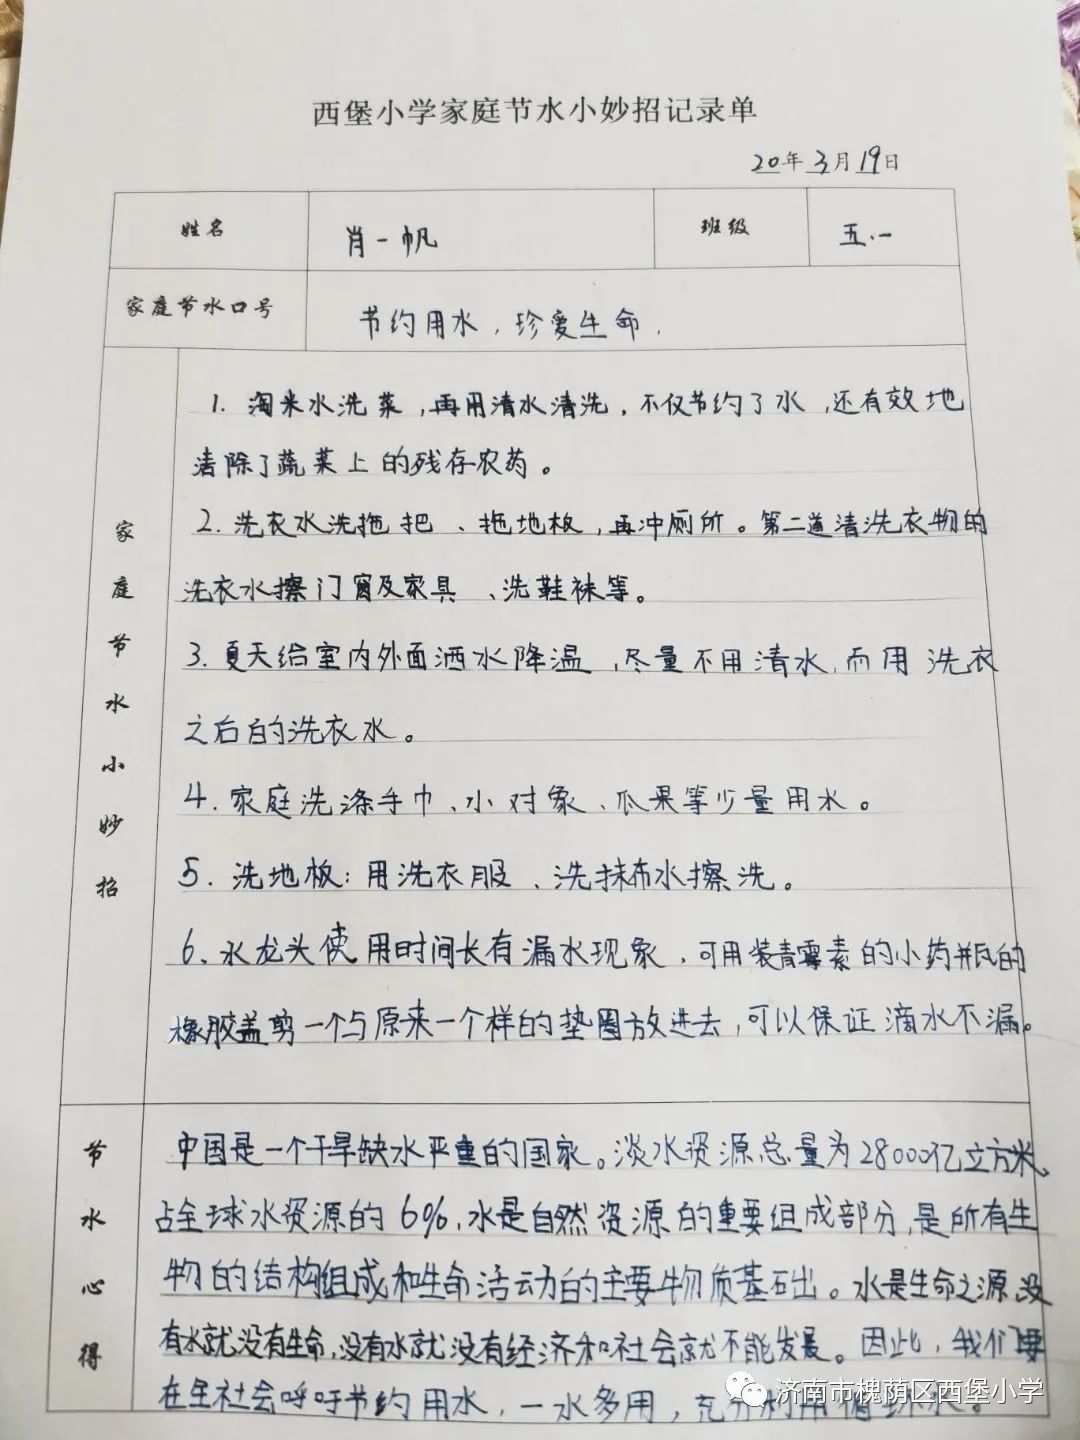 西堡小学家庭节水小妙招记录单
20年3月19日
姓名 肖一帆 班级 五.一
家庭节水口号 节约用水，珍爱生命．
家庭节水小妙招
1. 淘米水洗菜，再用清水清洗，不仅节约了水，还有效地
清除了蔬菜上的残存农药。
2. 洗衣水洗拖把、拖地板，再冲厕所。第二道清洗衣物的
洗衣水擦门窗及家具、洗鞋袜等。
3. 夏天给室内外面洒水降温，尽量不用清水，而用洗衣
之后的洗衣水。
4. 家庭洗涤手巾、小对象、瓜果等少量用水。
5. 洗地板：用洗衣服、洗抹布水擦洗。
6、水龙头使用时间长有漏水现象，可用装青霉素的小药瓶的
橡胶盖剪一个与原来一个样的垫圈放进去，可以保证滴水不漏。
节水心得
中国是一个干旱缺水严重的国家。淡水资源总量为28000亿立方米，
占全球水资源的6%，水是自然资源的重要组成部分，是所有生
物的结构组成和生命活动的主要物质基础。水是生命之源，没
有水就没有生命，没有水就没有经济和社会就不能发展。因此，我们要
在全社会呼吁节约用水，一水多用，充分利用循环水。
济南市槐荫区西堡小学